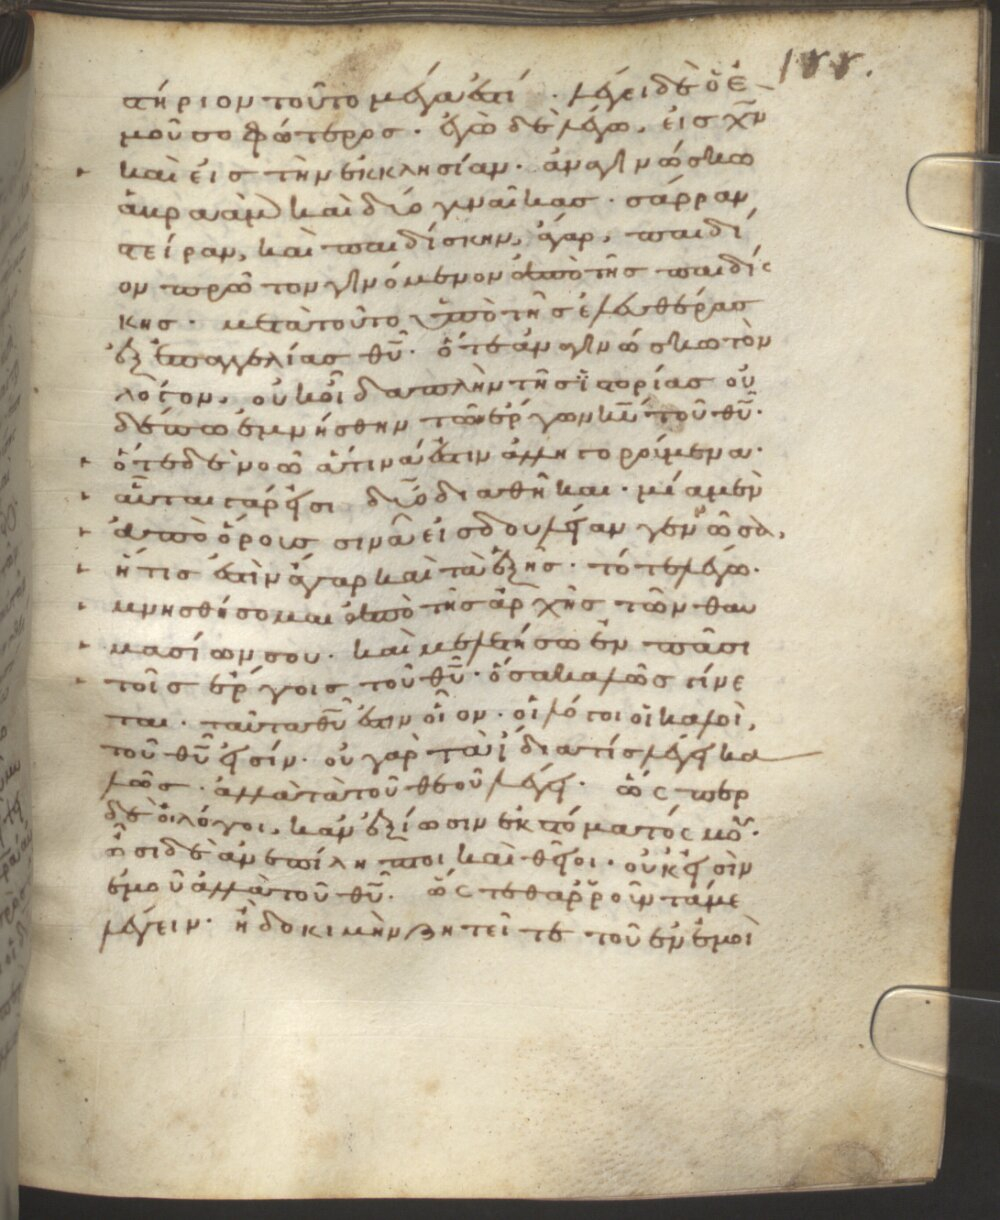 στήριον τοῦτο μέγα ἐστί · λέγει δὲ ὁ ἐ
μοῦ σοφώτερος · ἐγὼ δὲ λέγω, εἰς χ̅ν̅
καὶ εἰς τὴν ἐκκλησίαν · ἀναγινώσκω
ἀβραὰμ καὶ δύο γυναῖκας · σάρραν
στείραν, καὶ παιδίσκην, ἄγαρ, παιδί
ον πρῶτον γινόμενον ἀπὸ τῆς παιδίσ
κης · μετὰ τοῦτο ἀπὸ τῆς ἐλευθέρας
ἐξ ἐπαγγελίας θ̅υ̅ · ὅτε ἀναγινώσκω τὸν
λόγον, οὐκ οἶδα πλὴν τῆς ἱστορίας οὐ
δέπω ἐμνήσθην τῶν ἔργων κ̅υ̅ τοῦ θ̅υ̅ ·
ὅτε δὲ νοῶ ἅτινά ἐστιν ἀλληγορούμενα ·
αὗται γάρ εἰσι δύο διαθῆκαι · μία μὲν
ἀπὸ ὄρους σινᾶ εἰς δουλείαν γεννῶσα,
ἥτις ἐστὶν ἄγαρ καὶ τὰ ἑξῆς · τότε λέγω ·
μνησθήσομαι ἀπὸ τῆς ἀρχῆς τῶν θαυ
μασίων σου · καὶ μελετήσω ἐν πᾶσι
τοῖς ἔργοις τοῦ θ̅υ̅ · ὅσα καλῶς γίνε
ται · ταῦτα θ̅υ̅ ἐστιν οἷον · οἱ λόγοι οἱ καλοὶ,
τοῦ θ̅υ̅ εἰσίν · οὐ γὰρ τὰ ἴδια τίς λέγει κα
λῶς · ἀλλὰ τὰ τοῦ θεοῦ λέγει · ὥσπερ
δὲ οἱ λόγοι, κἂν ἐξίωσιν ἐκ στόματός μου ·
ὦσι δὲ ἀνεπίληπτοι καὶ θεῖοι · οὐκ εἰσὶν
ἐμοῦ ἀλλὰ τοῦ θ̅υ̅ · ὥστε θαρροῦντά με
λέγειν · ἢ δοκιμὴν ζητεῖτε τοῦ ἐν ἐμοὶ